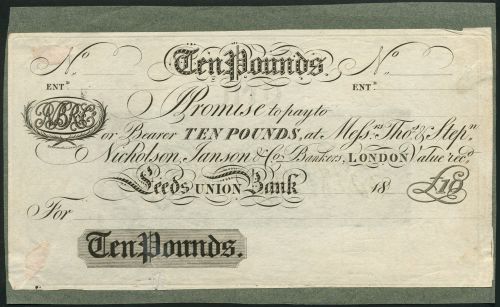 No Ten Pounds. No
ENTd. ENTd.
I Promise to pay to
or Bearer TEN POUNDS, at Messrs. Thos. & Stepn.
Nicholson, Janson & Co. Bankers, LONDON Value recd.
Leeds UNION Bank 18 £10
For
Ten Pounds.